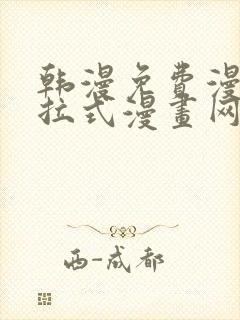 韩漫免费漫
拉式漫畫网
西-成都